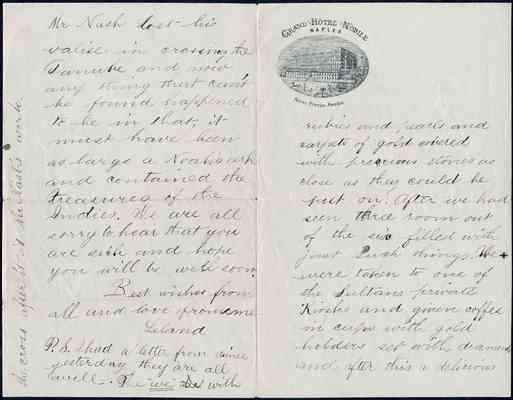 Mr Nash lost his
valise in crossing the
Danube and now
any thing that can't
be found happened
to be in that; it
must have been
as large a Noahs ark
and contained the
treasures of the
Indies. We are all
sorry to hear that you
are sick and hope
you will be well soon.
Best wishes from
all and love from me
Leland
P.S. I had a letter from
yesterday they are all
well. The with
the cross after it is work
GRAND HOTEL NOBILE
NAPLES
rubies and pearls and
carpets of gold covered
with precious stones as
close as they could be
put on. After we had
seen three room out
of the six filled with
just such things. We
were taken to one of
the Sultans private
Kiosks and given coffee
in cups with gold
holders set with diamonds
and after this a delicious